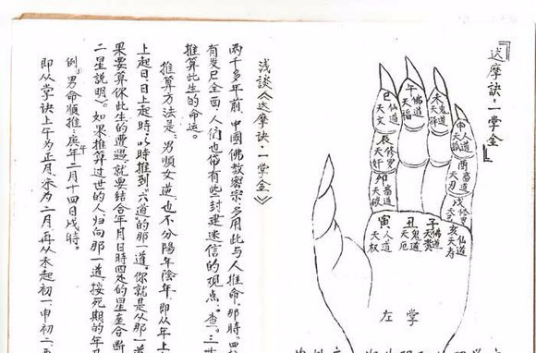 『达摩诀·一掌金』
巳仙道
天文
午佛道
天福
未鬼道
天驿
申人道
天孤
辰修罗
天奸
酉畜道
天刃
卯畜道
天破
戌修罗
寅人道
天权
丑鬼道
天厄
子佛道
天贵
亥仙道
天寿
左掌
浅谈《达摩诀·一掌金》
两千多年前,中国佛教密宗多用此与人推命,那时,
有发巳全面,人们也带有些封建迷信的观点。查。三
推算此生的命运。
推算方法是:男顺女逆,也不分阳年阴年,即从年上
上起日,日上起时,以时推到六道的那一道。你就是从那一道
果要算你此生的遭遇就要结合年月日时四处的星至合断
二星说明)。如果推算过世的人,归向那一道,按死期的年
例:男命顺推:庚午年二月十四日戌时。
即从掌诀上午为正月,未为二月,再从未起初一,申初二,